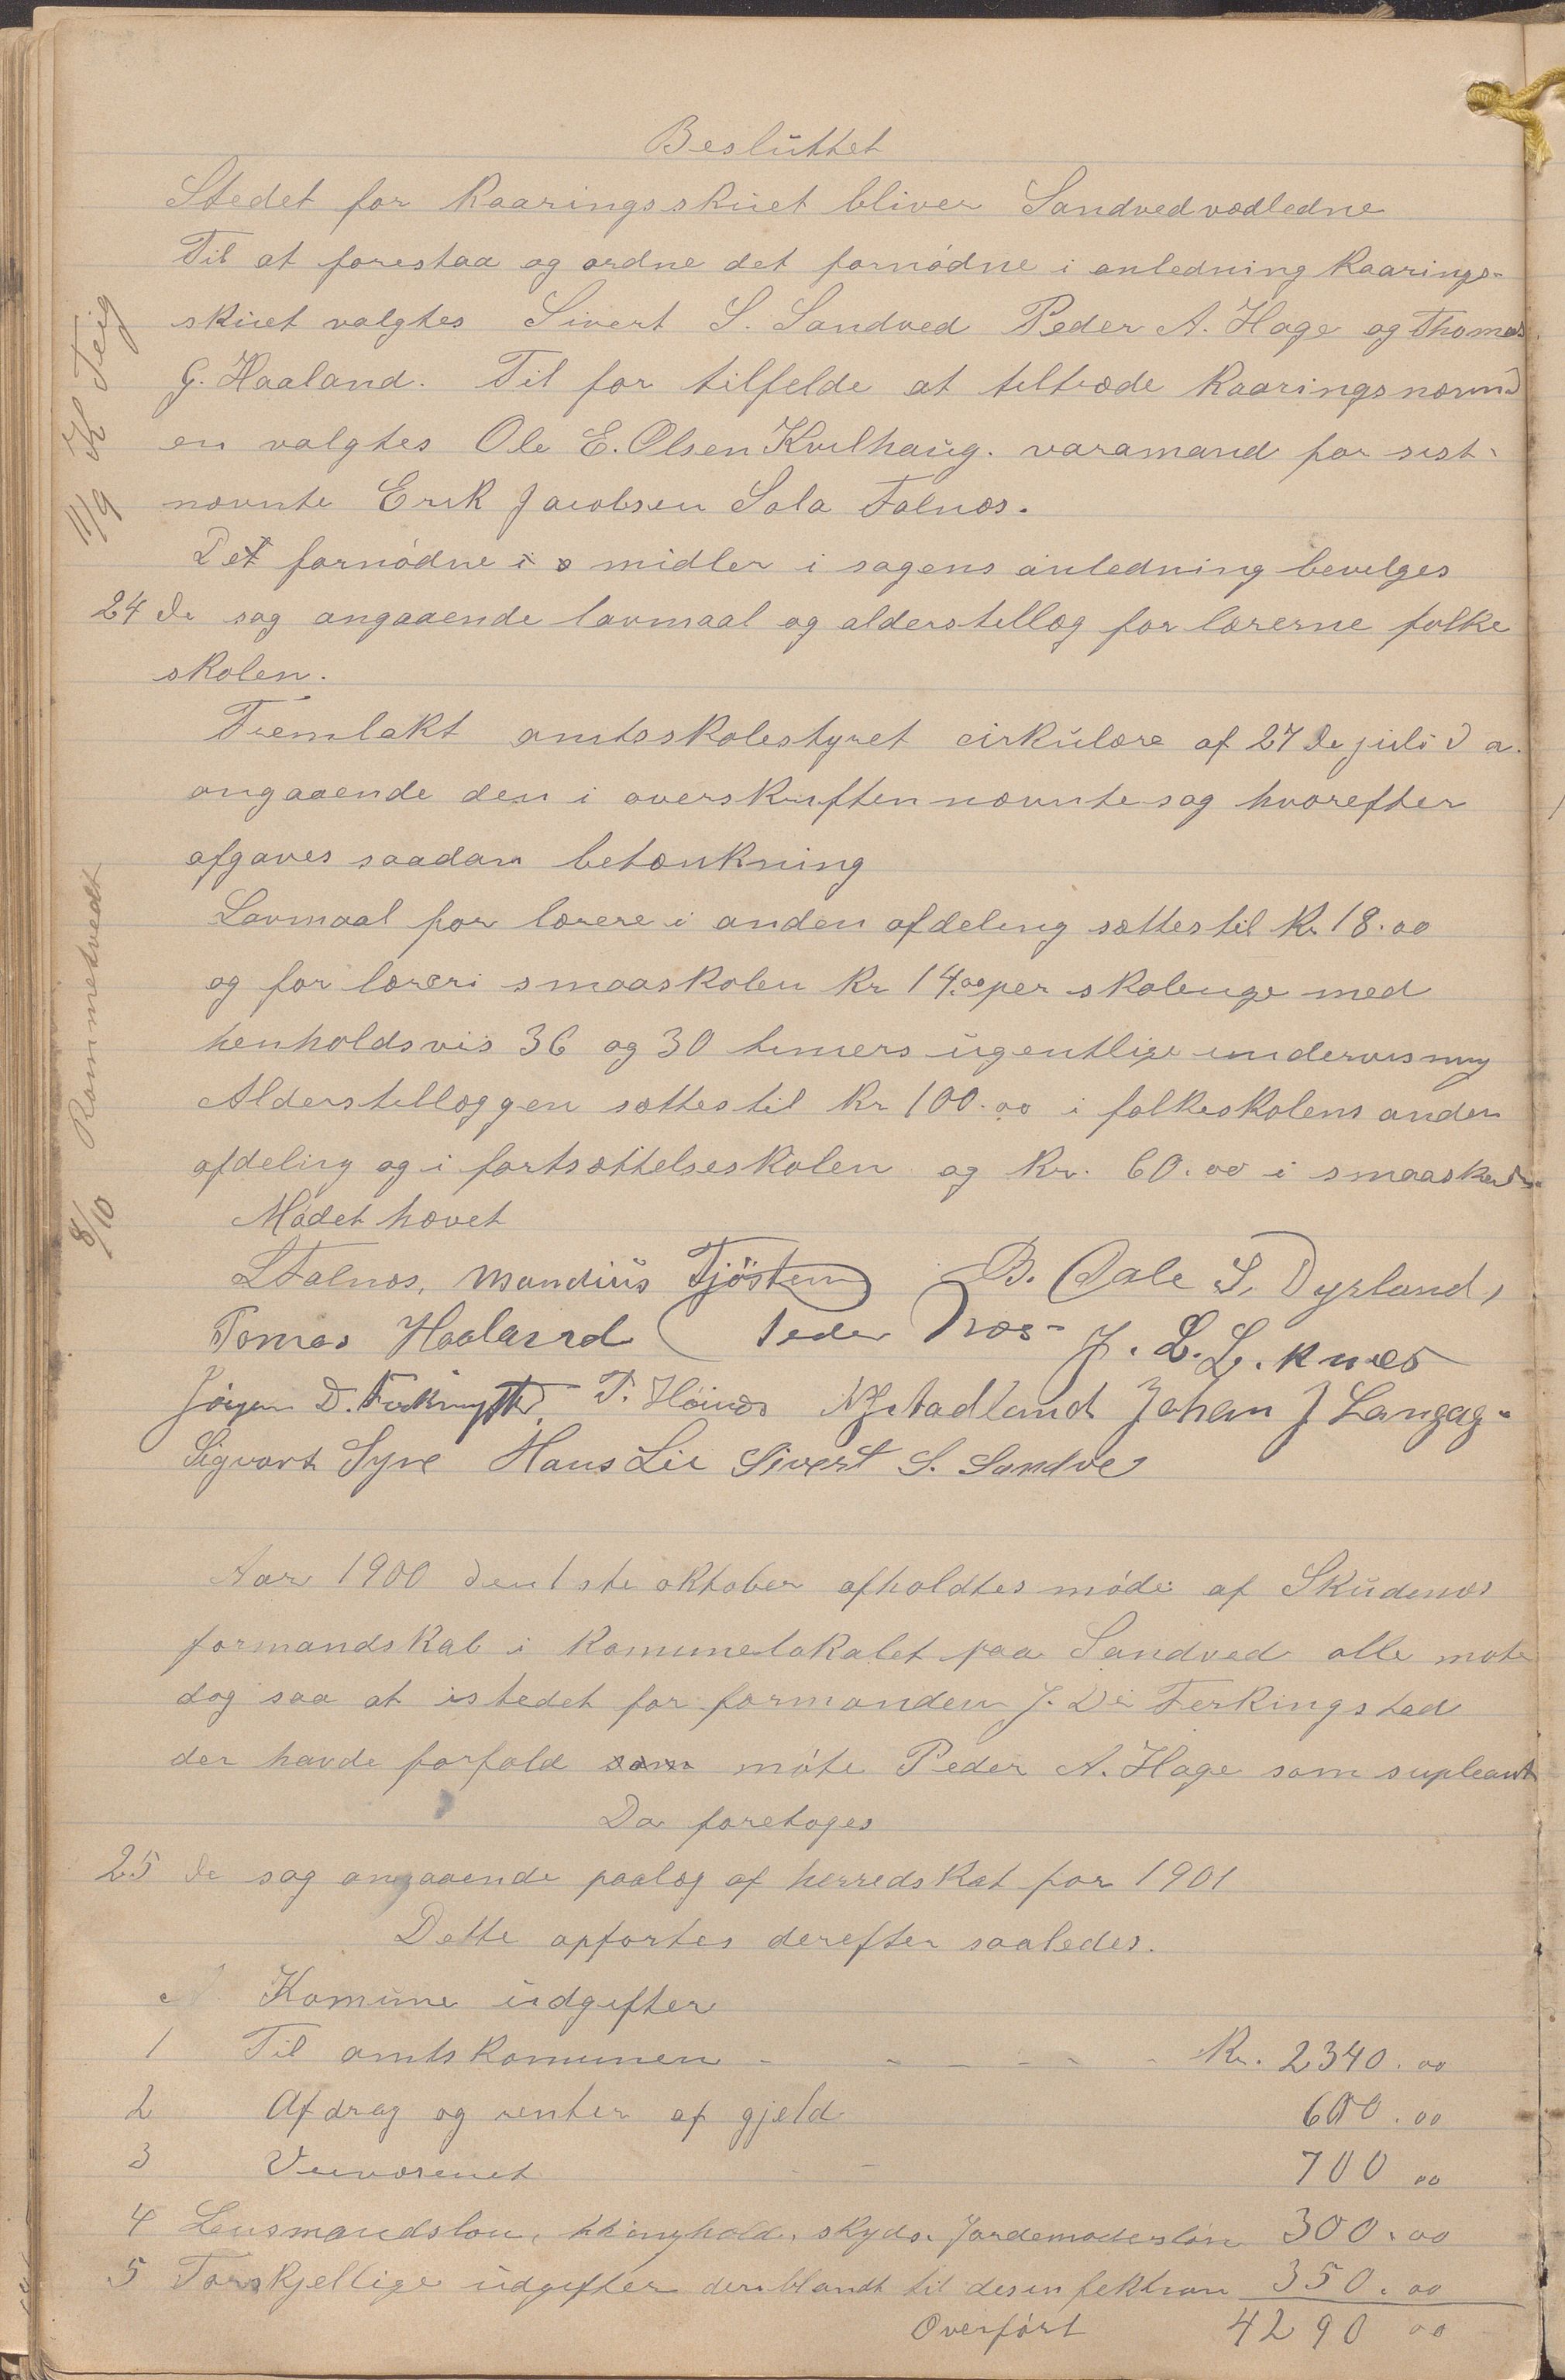 Besluttet
Stedet for kaaringsskuet bliver Sandvedvodledne
Til at forestaa og ordne det fornødne i anledning kaarings-
skuet valgtes Sivert S. Sandved Peder A. Hage og Thomas
G. Haaland. Til for tilfelde at tiltræde kaaringsnævnd
en valgtes Ole E. Olsen Kvilhaug. varamand for sist-
nævnte Erik Jacobsen Sola Falnæs.
Det fornødne midler i sagens anledning bevilges
24 de sag angaaende lavmaal og alderstillæg for lærerne folke
skolen.
Fremlakt amtsskolestyret cirkulære af 27 de juli d a.
angaaende den i overskriften nævnte sag hvorefter
afgaves saadan betænkning
Lavmaal for lærere i anden afdeling sættes til Kr 18.00
og for læreri smaaskolen Kr 14.00 per skoleuge med
henholdsvis 36 og 30 timers ugentlige undervisning
Alderstillæggen sættes til Kr 100.00 i folkeskolens anden
afdeling og i fortsættelseskolen og Kr. 60.00 i smaaskolen
Mødet hævet
L Falnæs, Mandius Tjøstem B. Dale S. Dyrland,
Tomas Haaland Peder Næs J. L. Liknes
Jørgen D. Ferkingstad T. Høinæs Stadland Johan J Langåg-
Sigvart Syre Hans Lie Sivert S. Sandve
Aar 1900 den 1ste oktober afholdtes møde af Skudenes
formandskab i komunelokalet paa Sandved alle møte
dog saa at istedet for formanden J. D. Ferkingstad
der havde forfald som møte Peder A. Hage som supleant
Da foretoges
25 de sag angaaende paalæg af herredskat for 1901
Dette opførtes derefter saaledes.
A Komune udgifter
1 Til amtskomunen - - - - - Kr. 2340.00
2 Afdrag og renter af gjeld 600.00
3 Veivæsenet 700 00
4 Lensmandsløn, thinghold, skyds. Jordemoderløn 300.00
5 Forskjellige udgifter deriblandt til desinfektion 350.00
Overført 4290 00
11/9 K Teig
8/10 Rommetvedt